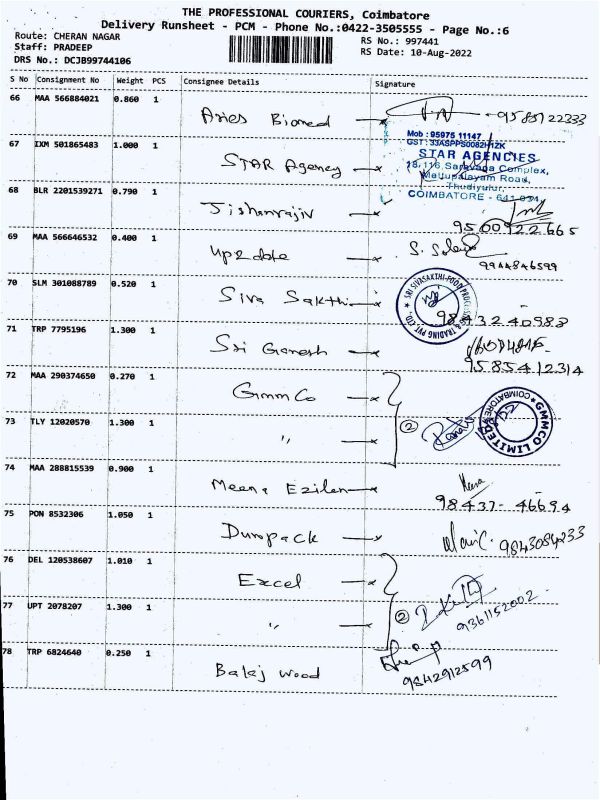 THE PROFESSIONAL COURIERS, Coimbatore
Delivery Runsheet - PCM - Phone No.:0422-3505555 - Page No.:6
Route: CHERAN NAGAR RS No.: 997441
Staff: PRADEEP RS Date: 10-Aug-2022
DRS No.: DCJB99744106
S No Consignment No Weight PCS Consignee Details Signature
66 MAA 566884021 0.860 1
Aries Biomed 9585122333
Mob : 95975 11147
67 IXM 501865483 1.000 1
STAR AGENCIES
STAR Agency
18,116, Saravana Complex,
Mettupalayam Road,
Thudiyalur,
68 BLR 2201539271 0.790 1
COIMBATORE - 641 034
Jishanrajiv
9500922665
69 MAA 566646532 0.400 1
up2date
9944846599
70 SLM 301088789 0.520 1
Siva Sakthi
SRI SIVASAKTHI FOOD PROCESSING & TRADING PVT. LTD.
9843240983
71 TRP 7795196 1.300 1
Sri Ganesh
9585412314
72 MAA 290374650 0.270 1
GmmCo
GMMCO LIMITED COIMBATORE
2
73 TLY 12020570 1.300 1
"
74 MAA 288815539 0.900 1
Meena Ezilan
98437-46694
75 PON 8532306 1.050 1
Duropack
9843084233
76 DEL 120538607 1.010 1
Excel
77 UPT 2078207 1.300 1
2
" 9361152002
78 TRP 6824640 0.250 1
Balaj wood
9842912599